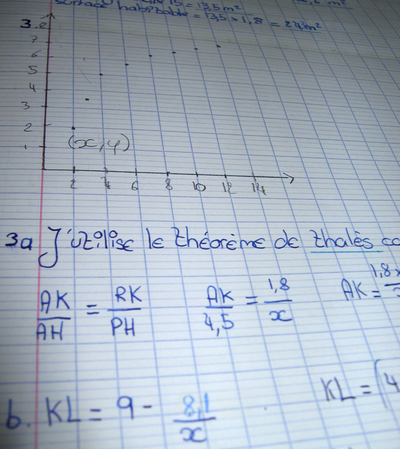 = 13,5 m²
surface habitable = 13,5 × 1,8 = 24 m²
3.2
7
6
5
4
3
2
1
(x, y)
2 4 6 8 10 12 14
3a J'utilise le théorème de thalès
AK/AH = RK/PH AK/4,5 = 1,8/x AK = 1,8
b. KL = 9 - 8,1/x KL = (4